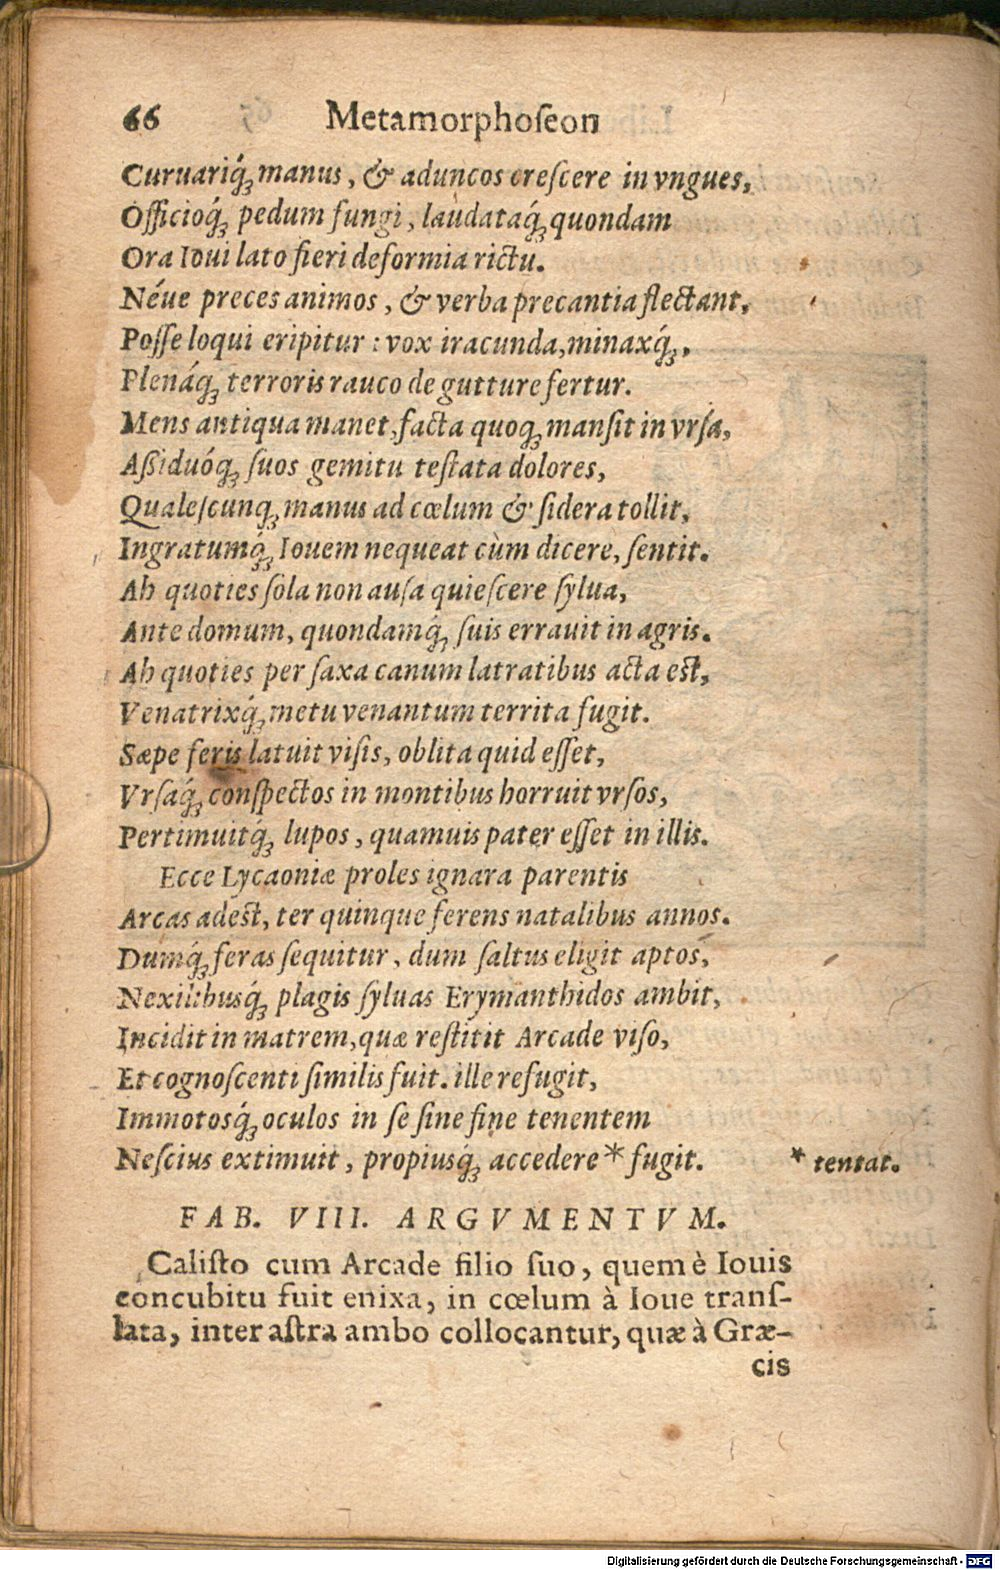 66 Metamorphoſeon
Curuariq́ꝫ manus, & aduncos creſcere in vngues,
Officioq́ꝫ pedum fungi, laudataq́ꝫ quondam
Ora Ioui lato fieri deformia rictu.
Néue preces animos, & verba precantia flectant,
Poſſe loqui eripitur: vox iracunda, minaxq́ꝫ,
Plenáq́ꝫ terroris rauco de gutture fertur.
Mens antiqua manet, facta quoqꝫ manſit in vrſa,
Aßiduóq́ꝫ ſuos gemitu teſtata dolores,
Qualeſcunqꝫ manus ad cœlum & ſidera tollit,
Ingratumq́ꝫ Iouem nequeat cùm dicere, ſentit.
Ah quoties ſola non auſa quieſcere ſylua,
Ante domum, quondamq́ꝫ ſuis errauit in agris.
Ah quoties per ſaxa canum latratibus acta eſt,
Venatrixq́ꝫ metu venantum territa fugit.
Sæpe feris latuit viſis, oblita quid eſſet,
Vrſaq́ꝫ conſpectos in montibus horruit vrſos,
Pertimuitq́ꝫ lupos, quamuis pater eſſet in illis.
Ecce Lycaoniæ proles ignara parentis
Arcas adeſt, ter quinque ferens natalibus annos.
Dumq́ꝫ feras ſequitur, dum ſaltus eligit aptos,
Nexilibusq́ꝫ plagis ſyluas Erymanthidos ambit,
Incidit in matrem, quæ reſtitit Arcade viſo,
Et cognoſcenti ſimilis fuit. ille refugit,
Immotosq́ꝫ oculos in ſe ſine fine tenentem
Neſcius extimuit, propiusq́ꝫ accedere * fugit. * tentat.
FAB. VIII. ARGVMENTVM.
Caliſto cum Arcade filio ſuo, quem è Iouis
concubitu fuit enixa, in cœlum à Ioue tranſ-
lata, inter aſtra ambo collocantur, quæ à Græ-
cis
Digitalisierung gefördert durch die Deutsche Forschungsgemeinschaft - DFG